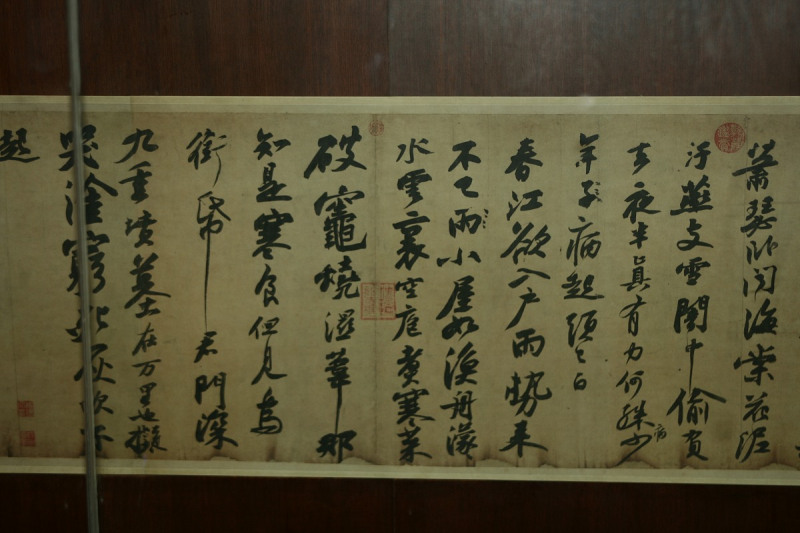 蕭瑟卧聞海棠花泥
汙燕支雪闇中偷負
去夜半真有力何殊少
病
年子病起頭已白
春江欲入戶雨勢來
不已雨小屋如漁舟濛
水雲裏空庖煮寒菜
破竈燒濕葦那
知是寒食但見烏
銜帋君門深
九重墳墓在万里也擬
哭塗窮死灰吹不
起